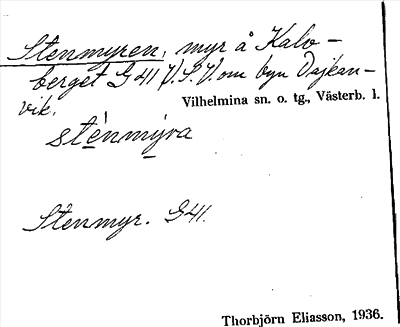 Stenmyren, myr å Kalv-
berget G 41 V.S.V. om byn Dajkan-
vik.
Vilhelmina sn. o. tg., Västerb. l.
stènmýra
Stenmyr. G 41.
Thorbjörn Eliasson, 1936.